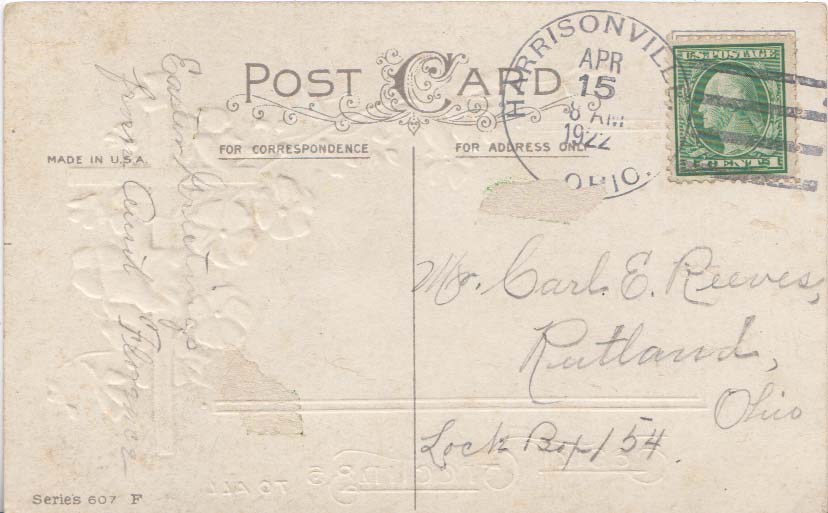 POST CARD
MADE IN U.S.A.
FOR CORRESPONDENCE
FOR ADDRESS ONLY
HARRISONVILLE
APR
15
8 AM
1922
OHIO.
U.S. POSTAGE
1 CENTS 1
Easter Greetings
from Aunt Florence
Mr. Carl. E. Reeves,
Rutland,
Ohio
Lock Box 154.
Greetings
TO ALL
Series 607 F